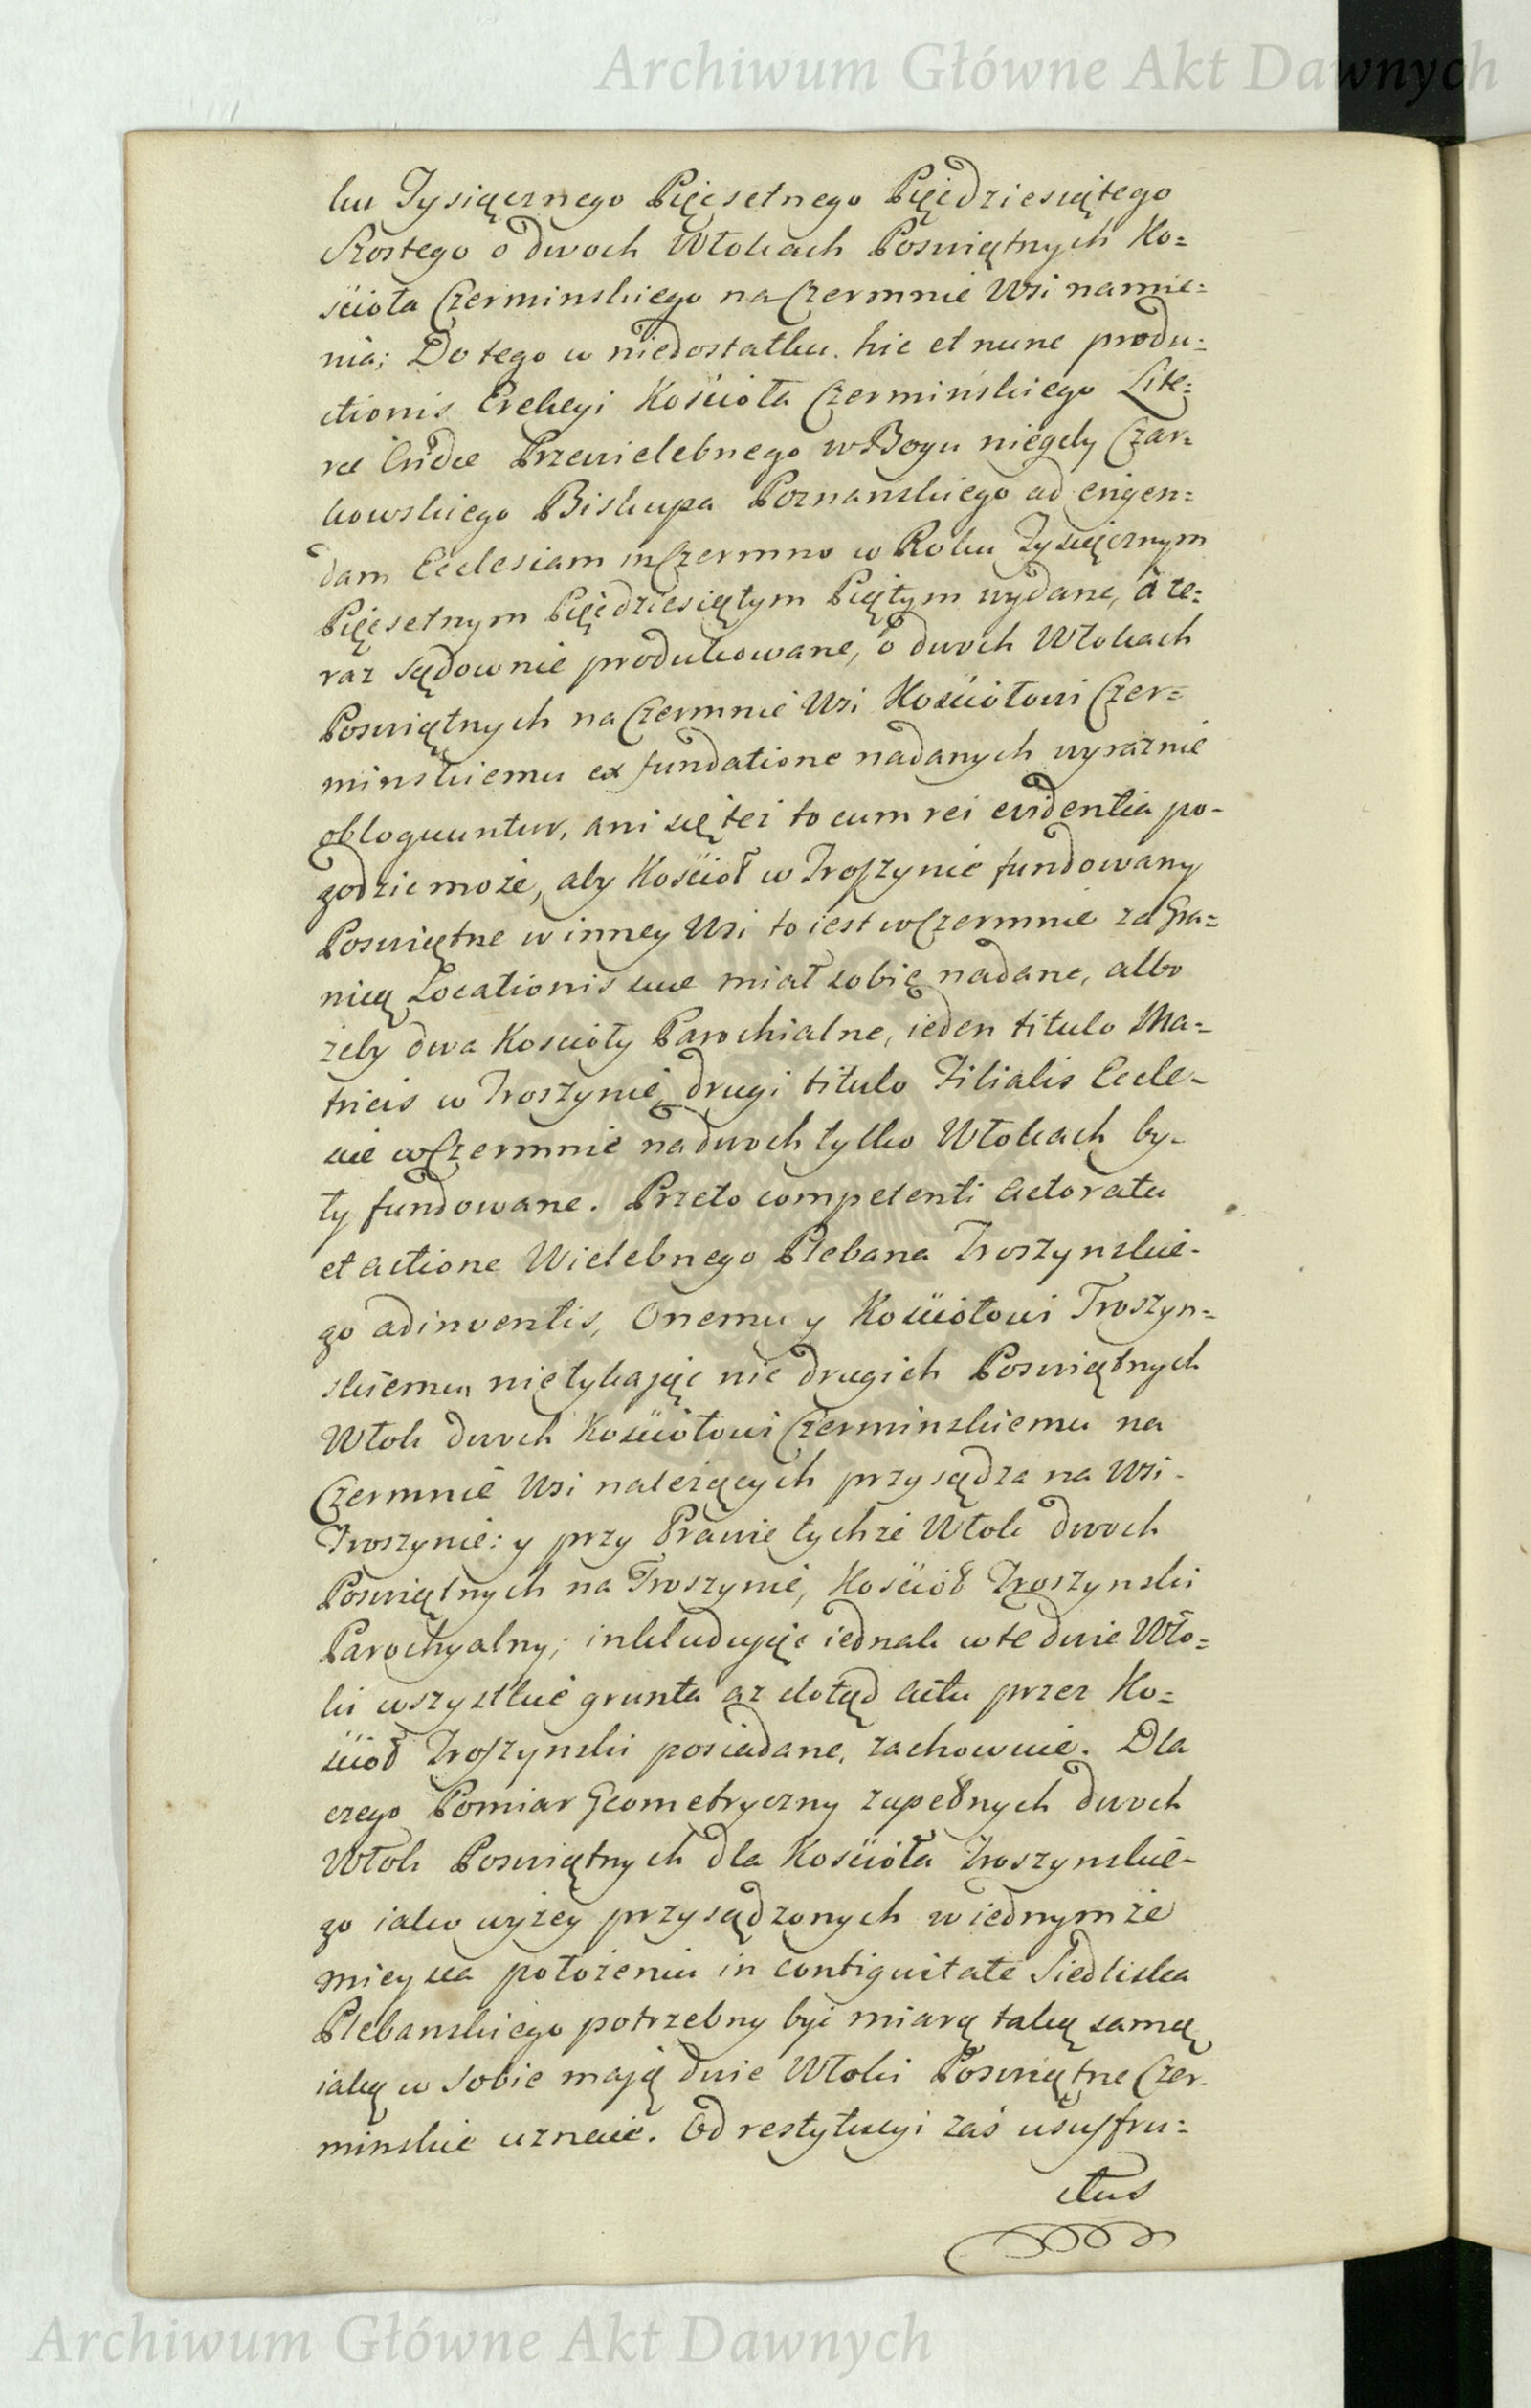 Archiwum Główne Akt Dawnych
ku Tysiącznego Pięćsetnego Pięćdziesiątego
Szostego o dwoch Włokach Poswiątnych Ko=
ścioła Czerminskiego na Czermnie Wsi namie=
nia; Do tego w niedostatku hic et nunc produ=
ctionis Erekcyi Kościoła Czermińskiego Lite=
ræ Przewielebnego w Bogu niegdy Czar=
kowskiego Biskupa Poznanskiego ad erigen=
dam Ecclesiam in Czermno w Roku Tysiącznym
Pięćsetnym Pięćdziesiątym Piątym wydane, á te=
raz sądownie produkowane, o dwoch Włokach
Poswiątnych na Czermnie Wsi Kościołowi Czer=
minskiemu ex fundatione nadanych wyraznie
obloquuntur, ani się też to cum rei evidentia po-
godzic może, aby Kościoł w Troszynie fundowany
Poswiątne w inney Wsi to iest w Czermnie za Gra=
nicą Locationis suæ miał sobie nadane, albo
żeby dwa Koscioły Parochialne, ieden titulo Ma=
tricis w Troszynie, drugi titulo Filialis Eccle-
siæ w Czermnie na dwoch tylko Włokach by-
ły fundowane. Przeto competenti Actoratu
et actione Wielebnego Plebana Troszynskie-
go adinventis, Onemu y Kościołowi Troszyn=
skiemu nietykając nic drugich Poswiątnych
Włok dwoch Kościołowi Czerminskiemu na
Czermnie Wsi należących przysądza na Wsi-
Troszynie: y przy Prawie tychże Włok dwoch
Poswiątnych na Troszynie, Kościoł Troszynski
Parochyalny; inkludując iednak w te dwie Wło=
ki wszystkie grunta az dotąd actu przez Ko=
ścioł Troszynski posiadane, zachowuie. Dla
czego Pomiar Geometryczny zupełnych dwoch
Włok Poswiątnych dla Kościoła Troszynskie-
go iako wyżey przysądzonych w iednymże
mieysca położeniu in contiguitate Siedliska
Plebanskiego potrzebny byi miarą taką samą
iaką w sobie mają dwie Włoki Poswiątne Czer-
minskie uznaie. Od restytucyi zaś usufru=
ctus
Archiwum Główne Akt Dawnych